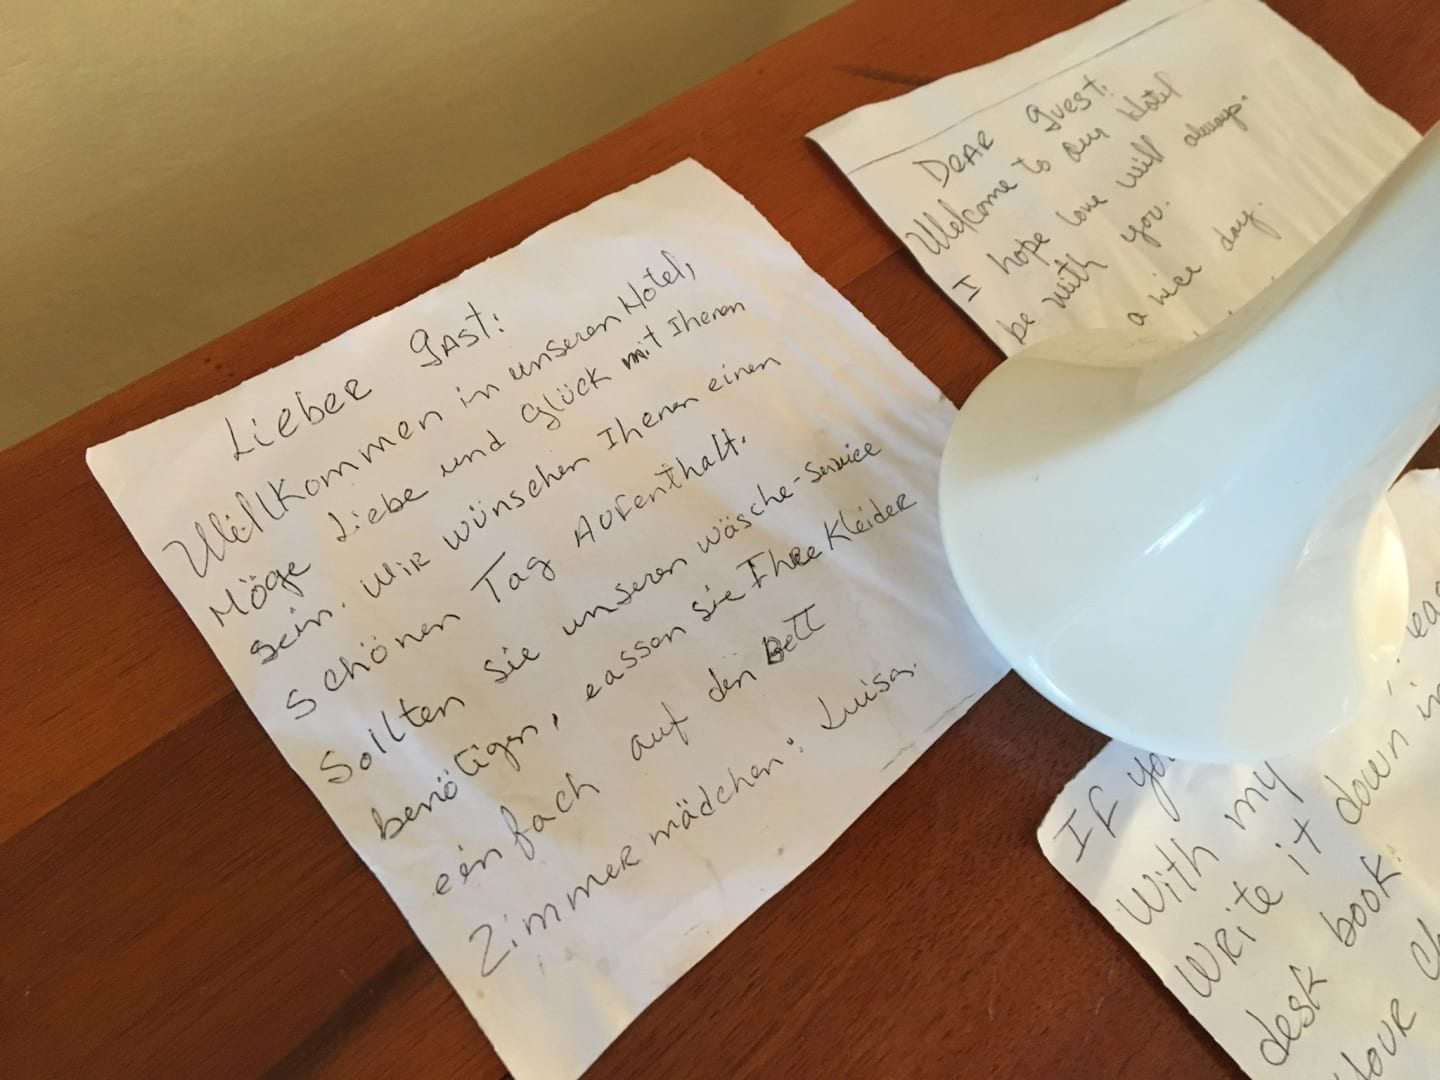 Lieber gast:
Willkommen in unseren Hotel,
Möge Liebe und Glück mit Iheren
sein. Wir wünschen Iheren einen
schönen Tag Aufenthalt.
Sollten sie unseren wäsche-service
benötigen, eassen sie Ihre Kleider
einfach auf den Bett
Zimmer mädchen: Luisa.
Dear guest:
Welcome to our Hotel
I hope love will always
be with you.
a nice day.
If you
with my
write it down in
desk book.
your